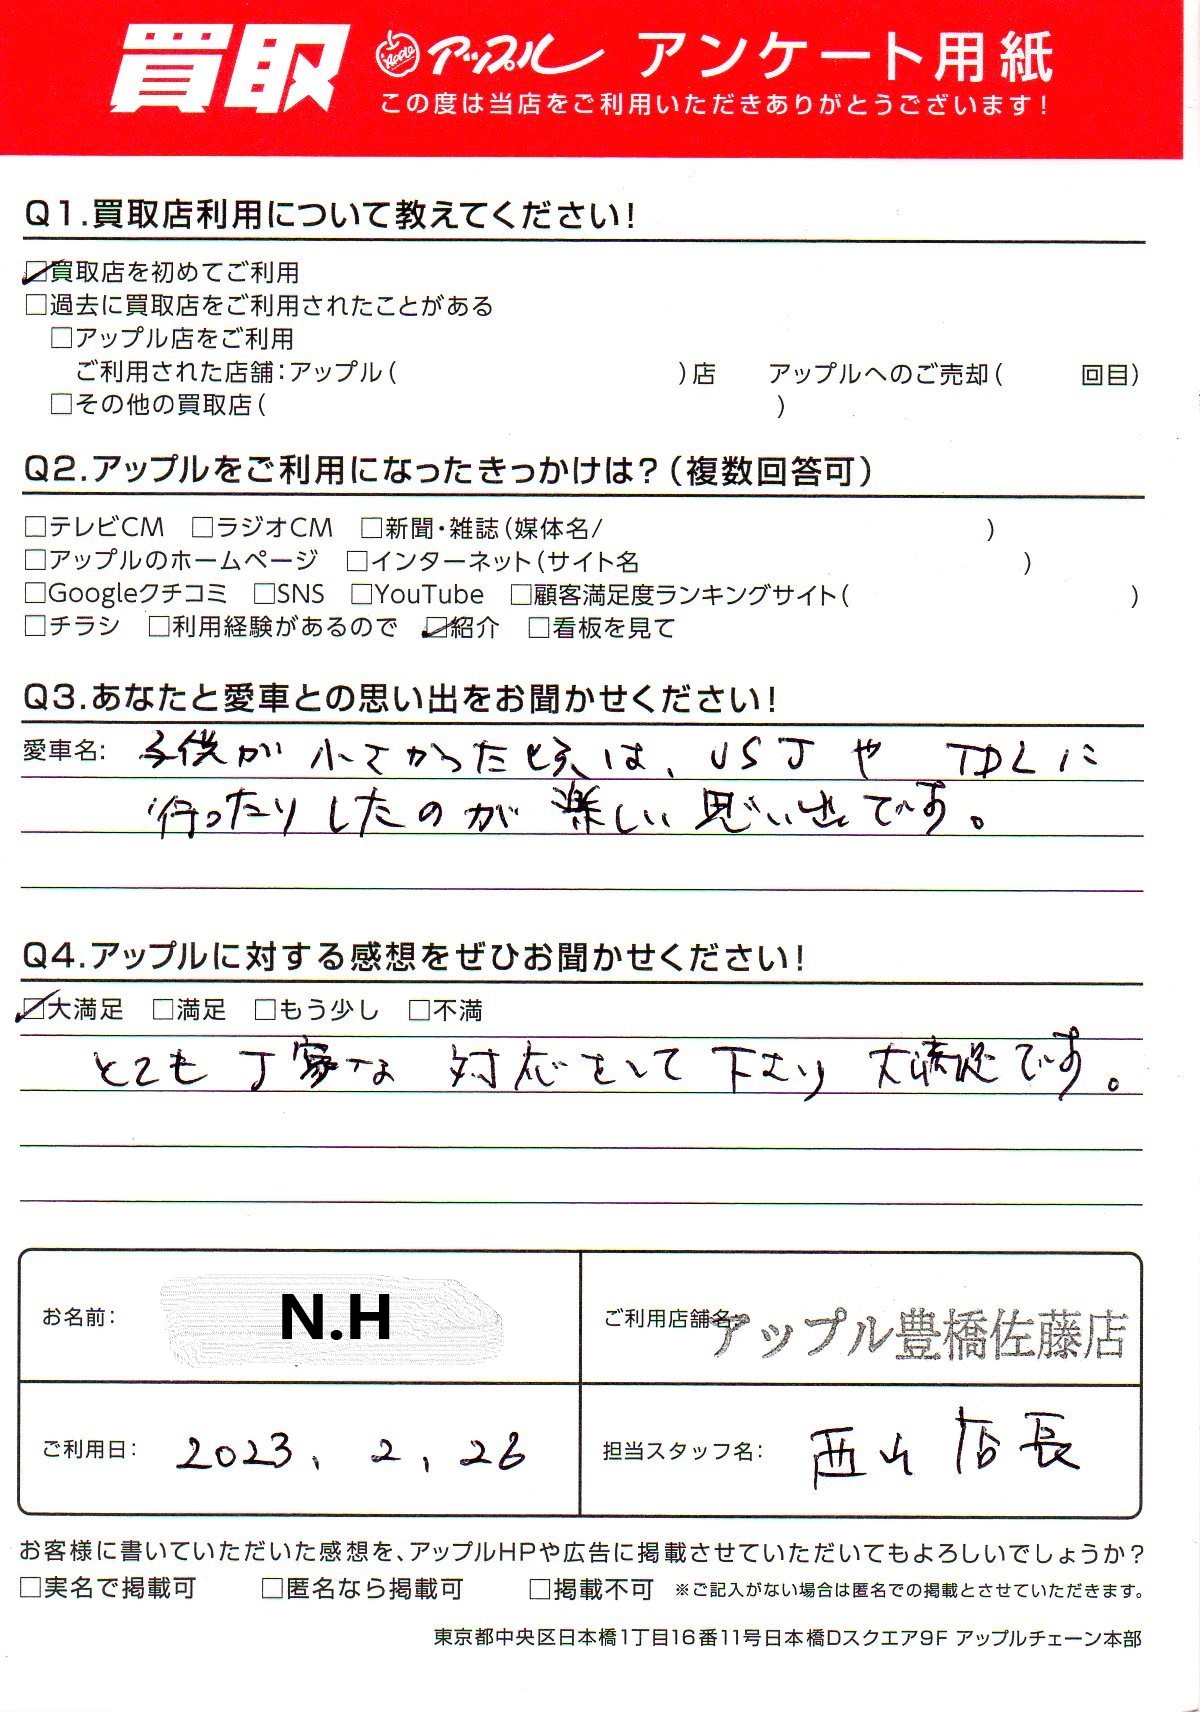 買取 Apple アップル アンケート用紙
この度は当店をご利用いただきありがとうございます!
Q1.買取店利用について教えてください!
☑買取店を初めてご利用
□過去に買取店をご利用されたことがある
□アップル店をご利用
ご利用された店舗:アップル( )店 アップルへのご売却( 回目)
□その他の買取店( )
Q2.アップルをご利用になったきっかけは?(複数回答可)
□テレビCM □ラジオCM □新聞・雑誌(媒体名/ )
□アップルのホームページ □インターネット(サイト名 )
□Googleクチコミ □SNS □YouTube □顧客満足度ランキングサイト( )
□チラシ □利用経験があるので ☑紹介 □看板を見て
Q3.あなたと愛車との思い出をお聞かせください!
愛車名: 子供が小さかった頃は、USJや TDLに
行ったりしたのが楽しい思い出です。
Q4.アップルに対する感想をぜひお聞かせください!
☑大満足 □満足 □もう少し □不満
とても丁寧な対応をして下さり大満足です。
お名前: N.H ご利用店舗名: アップル豊橋佐藤店
ご利用日: 2023, 2, 26 担当スタッフ名: 西山店長
お客様に書いていただいた感想を、アップルHPや広告に掲載させていただいてもよろしいでしょうか?
□実名で掲載可 □匿名なら掲載可 □掲載不可 ※ご記入がない場合は匿名での掲載とさせていただきます。
東京都中央区日本橋1丁目16番11号日本橋Dスクエア9F アップルチェーン本部